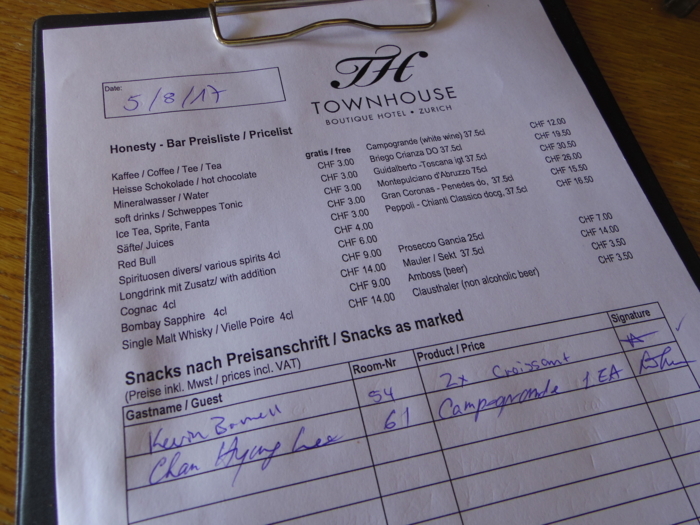 Date:
5/8/17
TH
TOWNHOUSE
BOUTIQUE HOTEL • ZURICH
Honesty - Bar Preisliste / Pricelist
Kaffee / Coffee / Tee / Tea gratis / free
Heisse Schokolade / hot chocolate CHF 3.00
Mineralwasser / Water CHF 3.00
soft drinks / Schweppes Tonic CHF 3.00
Ice Tea, Sprite, Fanta CHF 3.00
Säfte/ Juices CHF 4.00
Red Bull CHF 6.00
Spirituosen divers/ various spirits 4cl CHF 9.00
Longdrink mit Zusatz/ with addition CHF 14.00
Cognac 4cl CHF 9.00
Bombay Sapphire 4cl CHF 14.00
Single Malt Whisky / Vielle Poire 4cl
Campogrande (white wine) 37.5cl CHF 12.00
Briego Crianza DO 37.5cl CHF 19.50
Guidalberto -Toscana igt 37.5cl CHF 30.50
Montepulciano d'Abruzzo 75cl CHF 26.00
Gran Coronas - Penedes do, 37.5cl CHF 15.50
Peppoli - Chianti Classico docg, 37.5cl CHF 16.50
Prosecco Gancia 25cl CHF 7.00
Mauler / Sekt 37.5cl CHF 14.00
Amboss (beer) CHF 3.50
Clausthaler (non alcoholic beer) CHF 3.50
Snacks nach Preisanschrift / Snacks as marked
(Preise inkl. Mwst / prices incl. VAT)
Gastname / Guest Room-Nr Product / Price Signature
Kevin 54 2x Croissant
Chan Hyung Lee 61 Campogrande 1 EA